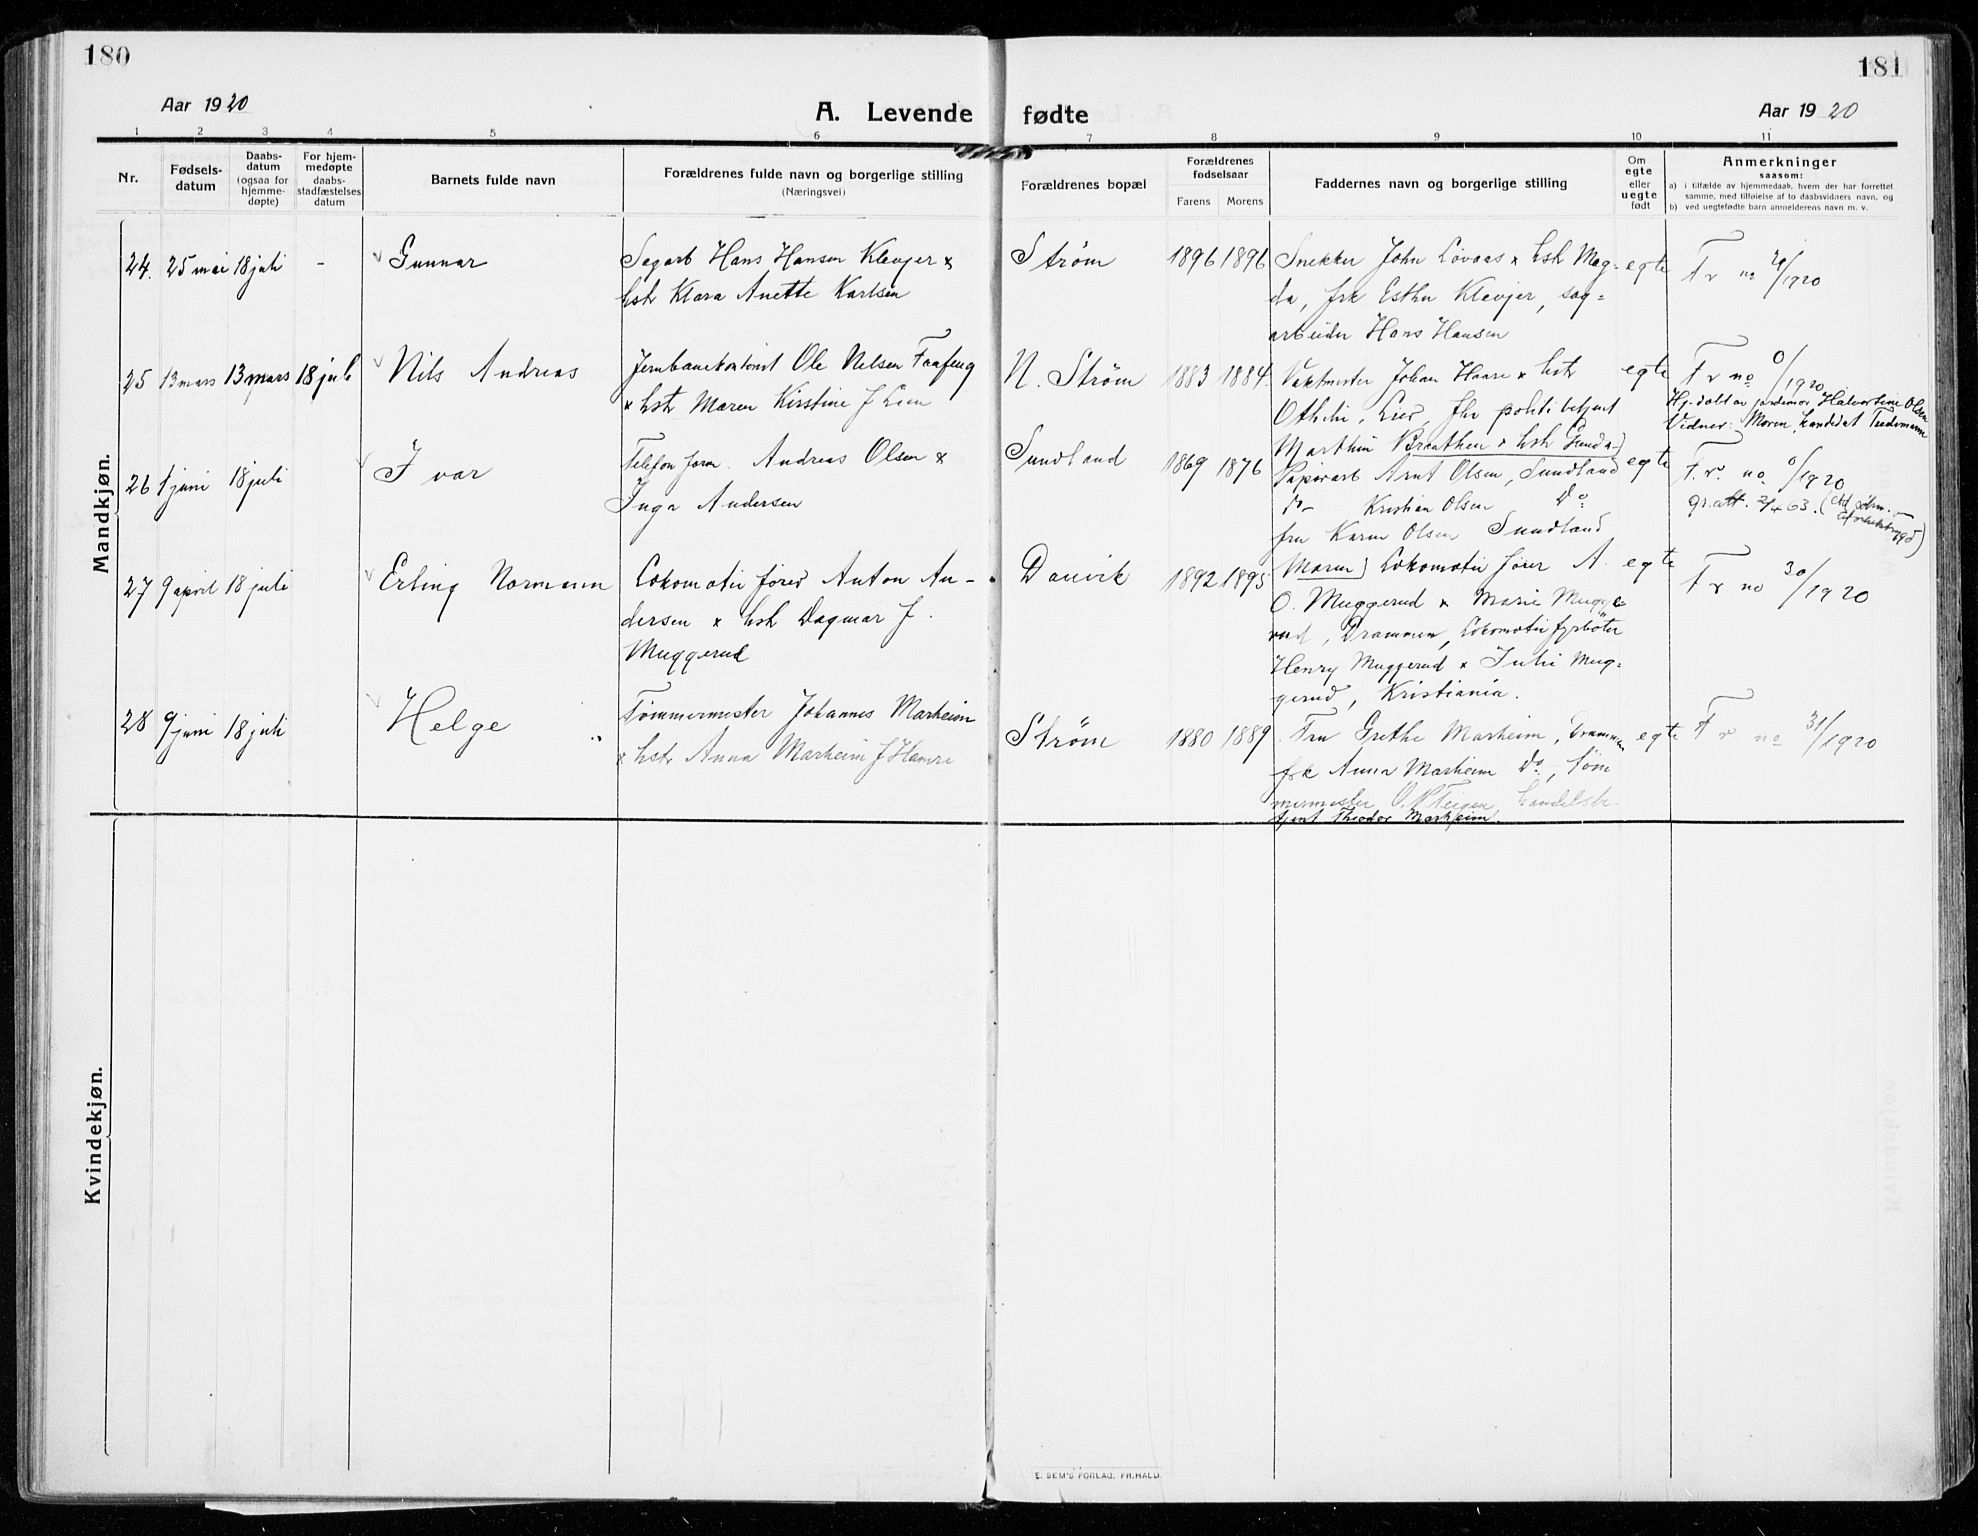 180
181
Aar 1920
A. Levende fødte
Aar 1920
1 2 3 4 5 6 7 8 9 10 11
Nr.
Fødsels-
datum
Daabs-
datum
(ogsaa for
hjemme-
døpte)
For hjem-
medøpte
daabs-
stadfæstelses
datum
Barnets fulde navn
Forældrenes fulde navn og borgerlige stilling
(Næringsvei)
Forældrenes bopæl
Forældrenes
fødselsaar
Farens Morens
Faddernes navn og borgerlige stilling
Om
egte
eller
uegte
født
Anmerkninger
saasom:
a) i tilfælde av hjemmedaab, hvem der har forrettet
samme, med tilføielse af to daabsvidners navn, og
b) ved uegtefødte barn anmelderens navn m. v.
Mandkjøn.
24. 25 mai 18 juli - Gunnar
Sagarb Hans Hansen Klevjer &
hstr Klara Anette Karlsen
Strøm 1896 1896
Snekker John Lovaas & hstr Mag-
da, frk Esther Klevjer, sag=
arbeider Hans Hansen
egte
Fr no 29/1920
25 13 mars 13 mars 18 juli Nils Andreas
Jernbanekontorist Ole Nilsen Faafeng
& hstr Maren Kirstine f Lien
N. Strøm 1883 1884
Vaktmester Johan Haare & hstr
Othilie, Lier, Fhv politibetjent
Marthin Braathen & hstr Gunda
egte
Fr no 0/1920
Hj.døbt av jordmor Halvorline Olsen
Vidner: Moren, kandidat Tidemann
26 1 juni 18 juli Ivar
Telefonform. Andreas Olsen &
Inga Andersen
Sundland 1869 1876
Papirarb Arnt Olsen, Sundland
Do - Kristian Olsen Do
fru Karen Olsen Sundland
egte
F. r. no. 0/1920
gr. att. 2/4 63.
27 9 april 18 juli Erling Normann
Lokomotivfører Anton An-
dersen & hstr Dagmar f.
Muggerud
Danvik 1892 1895
Maren) Lokomotivfører A.
O. Muggerud & Marie Mugge-
rud, Drammen, Lokomotivfyrbøter
Henry Muggerud & Julie Mug=
gerud, Kristiania.
egte
Fr no 30/1920
28 9 juni 18 juli Helge
Tømmermester Johannes Marheim
& hstr Anna Marheim f Hamre
Strøm 1880 1889
Fru Grethe Marheim, Drammen
frk Anna Marheim Do, Tøm
mermester O. P. Teigen, handelsbe-
tjent Theodor Marheim.
egte
Fr no 31/1920
Kvindekjøn.
E. SEM'S FORLAG, FR.HALD.